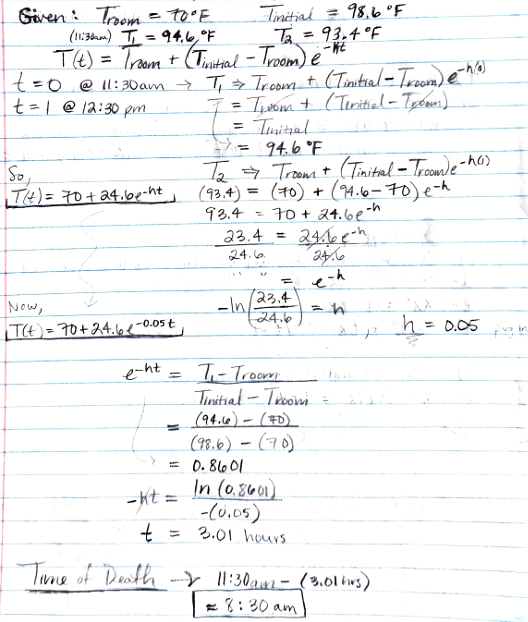 Given: Troom = 70°F Tinitial = 98.6°F
(11:30am) T₁ = 94.6°F T₂ = 93.4°F
T(t) = Troom + (Tinitial - Troom) e^-kt
t = 0 @ 11:30am → T₁ ⇒ Troom + (Tinitial - Troom) e^-k(0)
t = 1 @ 12:30 pm T = Troom + (Tinitial - Troom)
= Tinitial
= 94.6°F
So, T₂ ⇒ Troom + (Tinitial - Troom)e^-k(1)
T(t) = 70 + 24.6e^-kt, (93.4) = (70) + (94.6 - 70) e^-k
93.4 = 70 + 24.6e^-k
23.4 = 24.6e^-k
24.6 24.6
" " = e^-k
Now, -ln(23.4/24.6) = k
T(t) = 70 + 24.6e^-0.05t, k = 0.05
e^-kt = T₁ - Troom
Tinitial - Troom
= (94.6) - (70)
(98.6) - (70)
= 0.8601
-kt = ln (0.8601)
-(0.05)
t = 3.01 hours
Time of Death → 11:30am - (3.01 hrs)
≈ 8:30 am